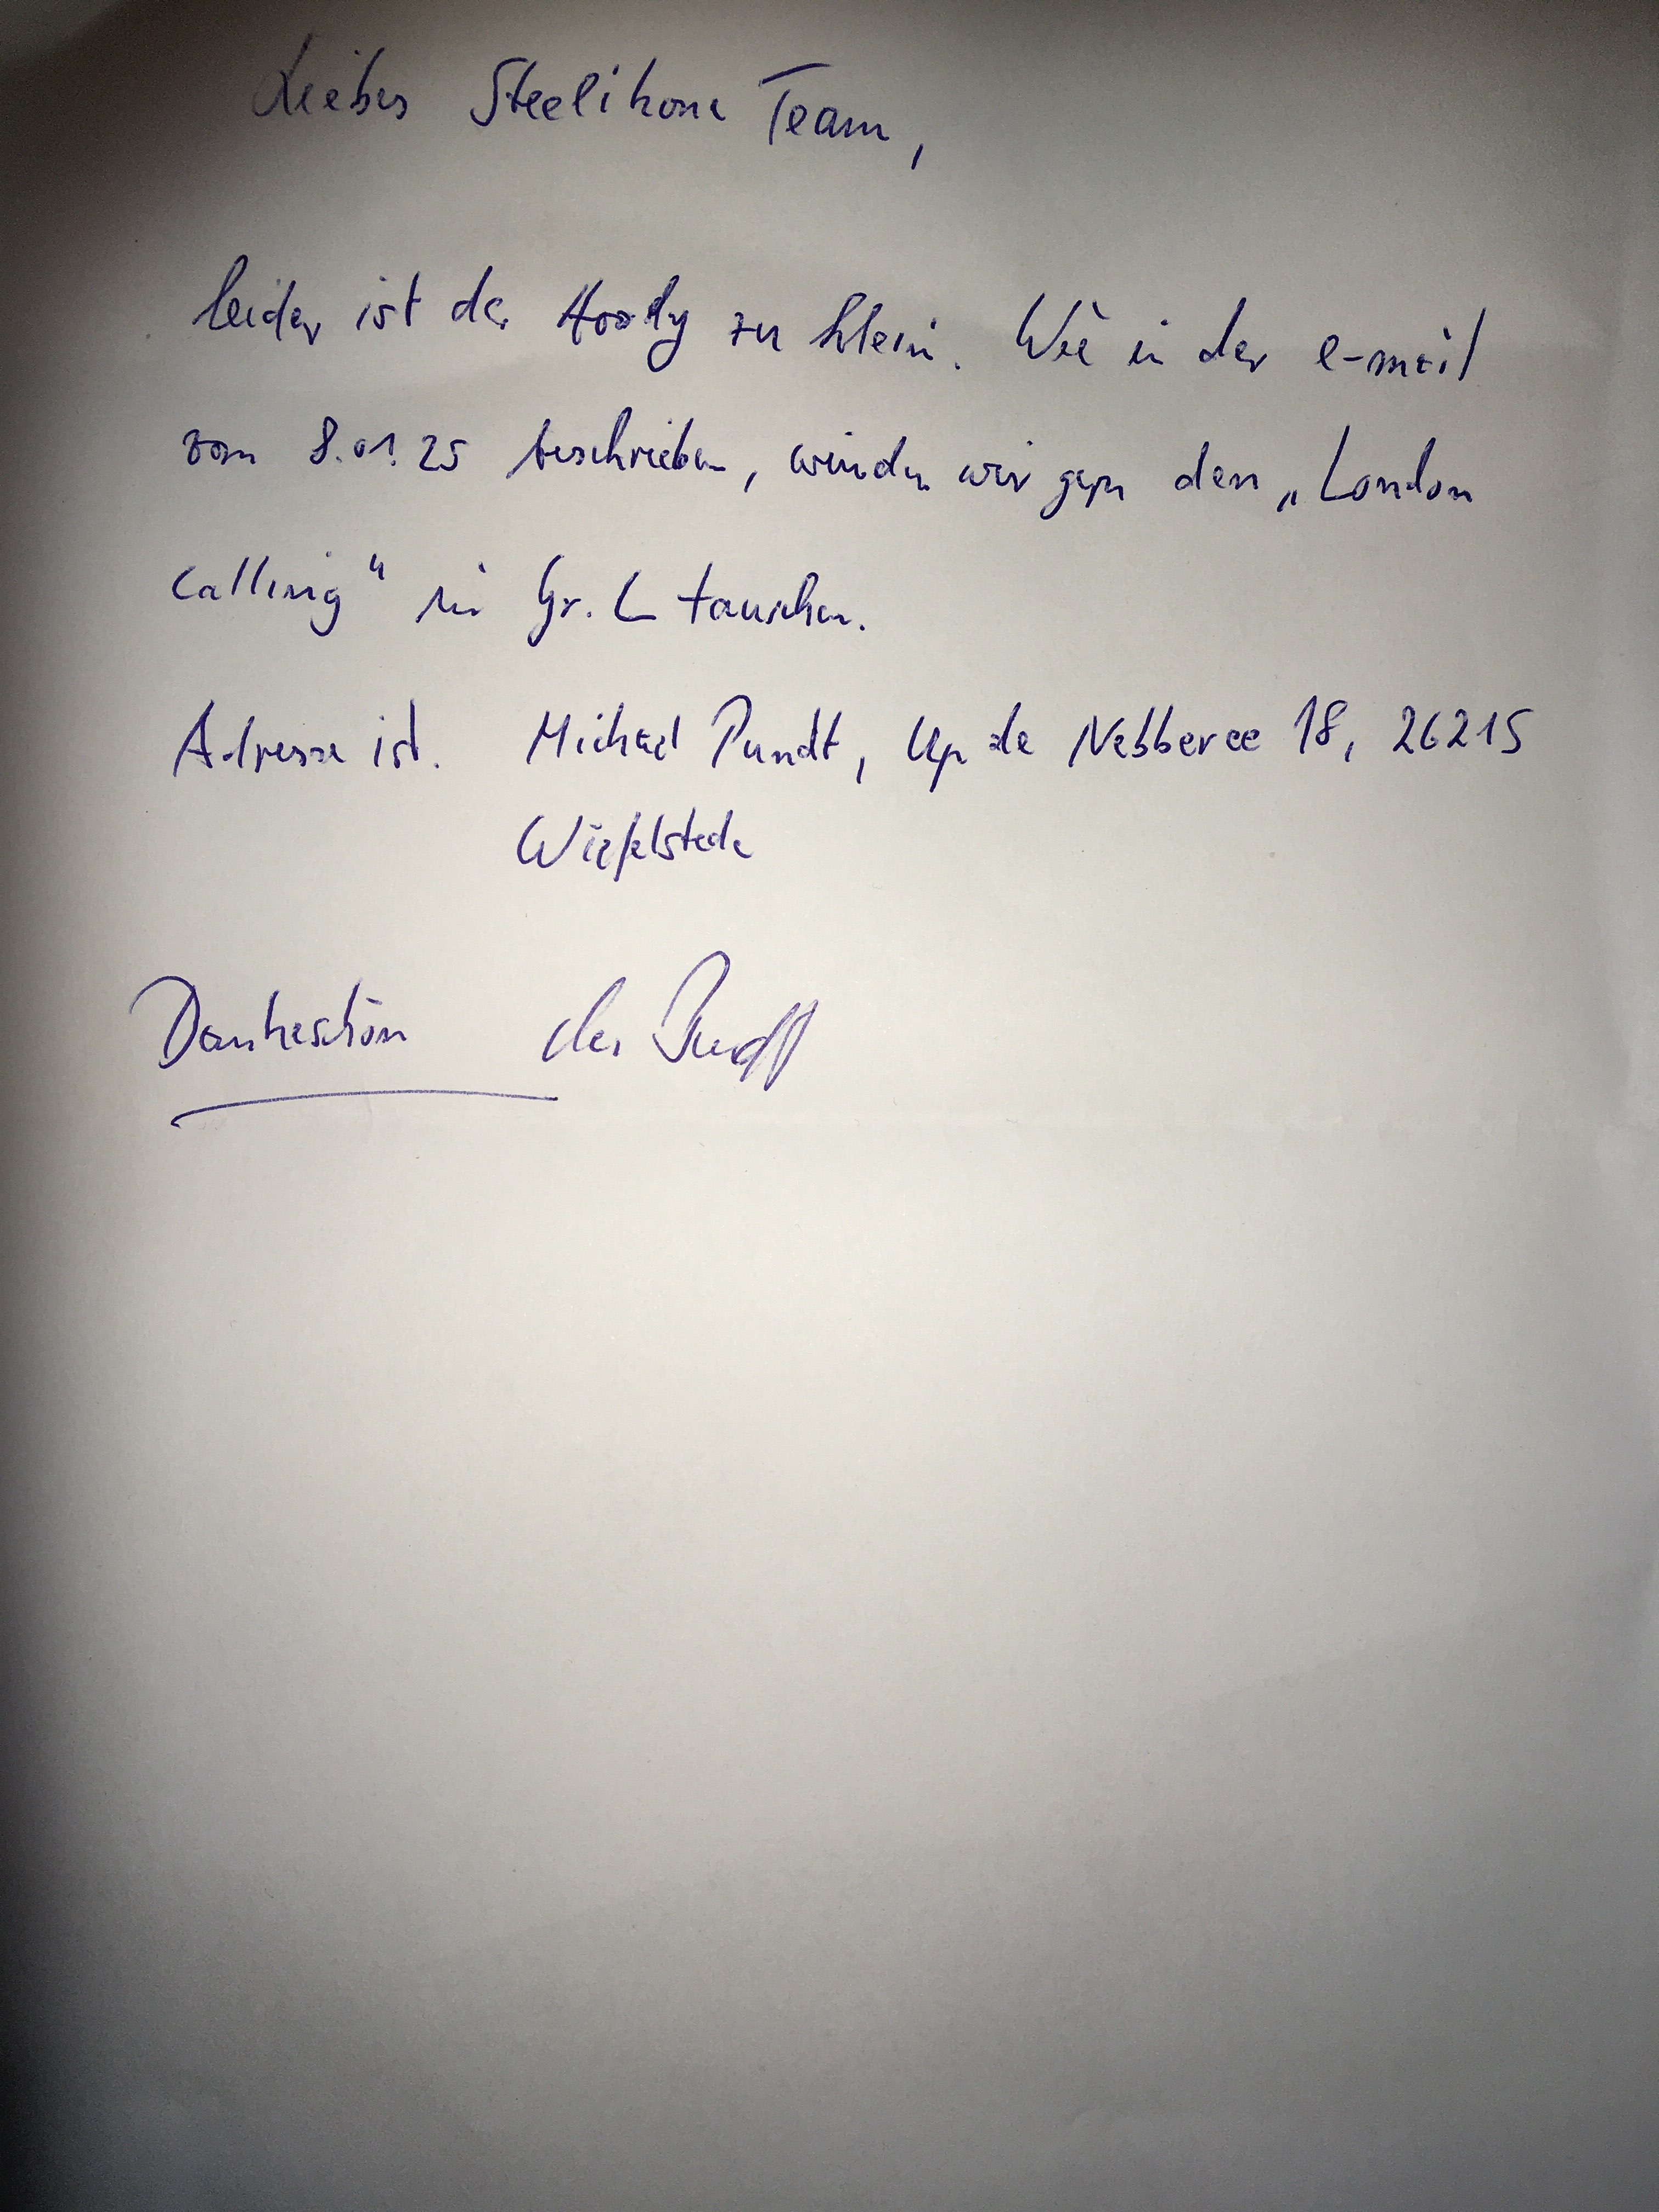 Liebes Steelikone Team,
leider ist der Hoody zu klein. Wie in der e-mail
vom 8.01.25 beschrieben, würden wir gegen den „London
Calling“ in Gr. L tauschen.
Adresse ist. Michael Pundt, Up de Nebberee 18, 26215
Wiefelstede
Dankeschön der Pundt